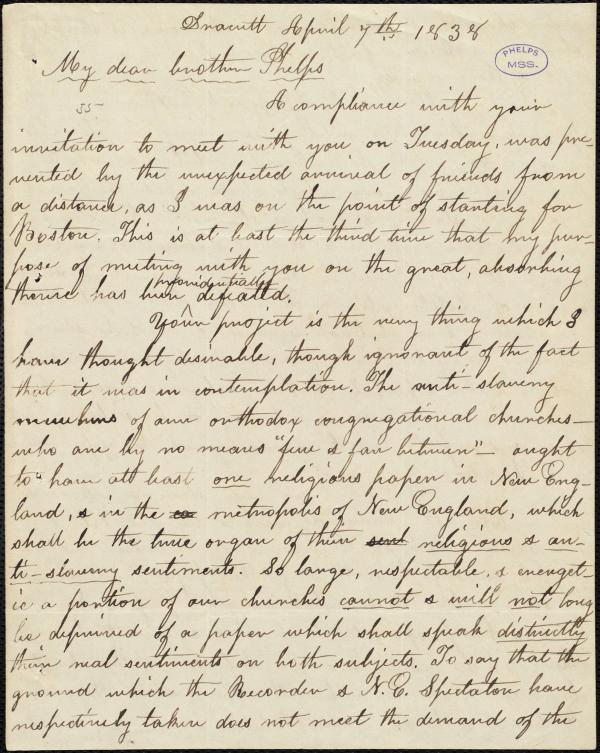 Dracutt April 7th 1838
PHELPS
MSS.
My dear brother Phelps
55
A compliance with your
invitation to meet with you on Tuesday, was pre-
vented by the unexpected arrival of friends from
a distance, as I was on the point of starting for
Boston. This is at least the third time that my pur-
pose of meeting with you on the great, absorbing
providentially
theme has been defeated.
Your project is the very thing which I
have thought desirable, though ignorant of the fact
that it was in contemplation. The anti-slavery
members of our orthodox congregational churches—
who are by no means "few & far between"— ought
to have at least one religious paper in New Eng-
land, & in the metropolis of New England, which
shall be the true organ of their sent religious & an-
ti-slavery sentiments. So large, respectable, & energet-
ic a portion of our churches cannot & will not long
be deprived of a paper which shall speak distinctly
their real sentiments on both subjects. To say that the
ground which the Recorder & N.E. Spectator have
respectively taken does not meet the demand of the